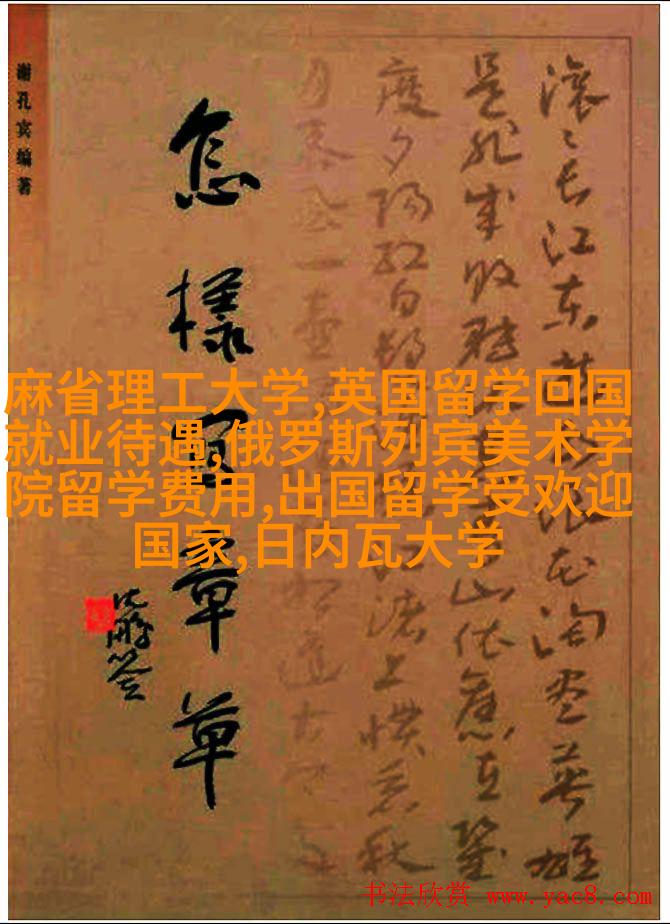 麻省理工大学,英国留学回国
就业待遇,俄罗斯列宾美术学
院留学费用,出国留学受欢迎
国家,日内瓦大学
滚〻长江东逝水浪花淘尽英雄
是非成败转头空青山依旧在几
度夕阳红白发渔樵江渚上惯看秋
怎樣寫章草
沈鹏签
谢孔宾编著
书法欣赏 www.yac8.com